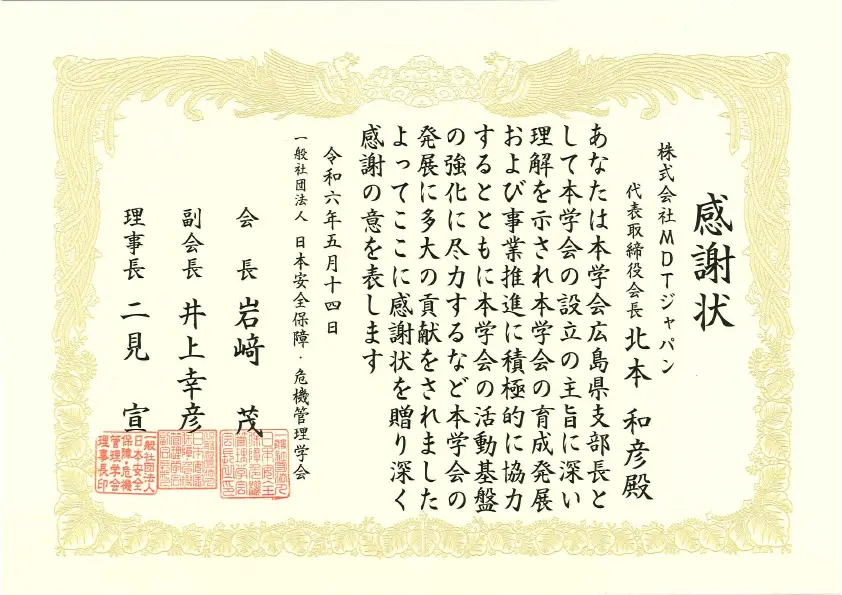 感謝状
株式会社MDTジャパン
代表取締役会長 北本 和彦殿
あなたは本学会広島県支部長と
して本学会の設立の主旨に深い
理解を示され本学会の育成発展
および事業推進に積極的に協力
するとともに本学会の活動基盤
の強化に尽力するなど本学会の
発展に多大の貢献をされました
よってここに感謝状を贈り深く
感謝の意を表します
令和六年五月十四日
一般社団法人 日本安全保障・危機管理学会
会長 岩﨑 茂
副会長 井上幸彦
理事長 二見 宣
一般社団法人
日本安全
保障・危機
管理学会
理事長印